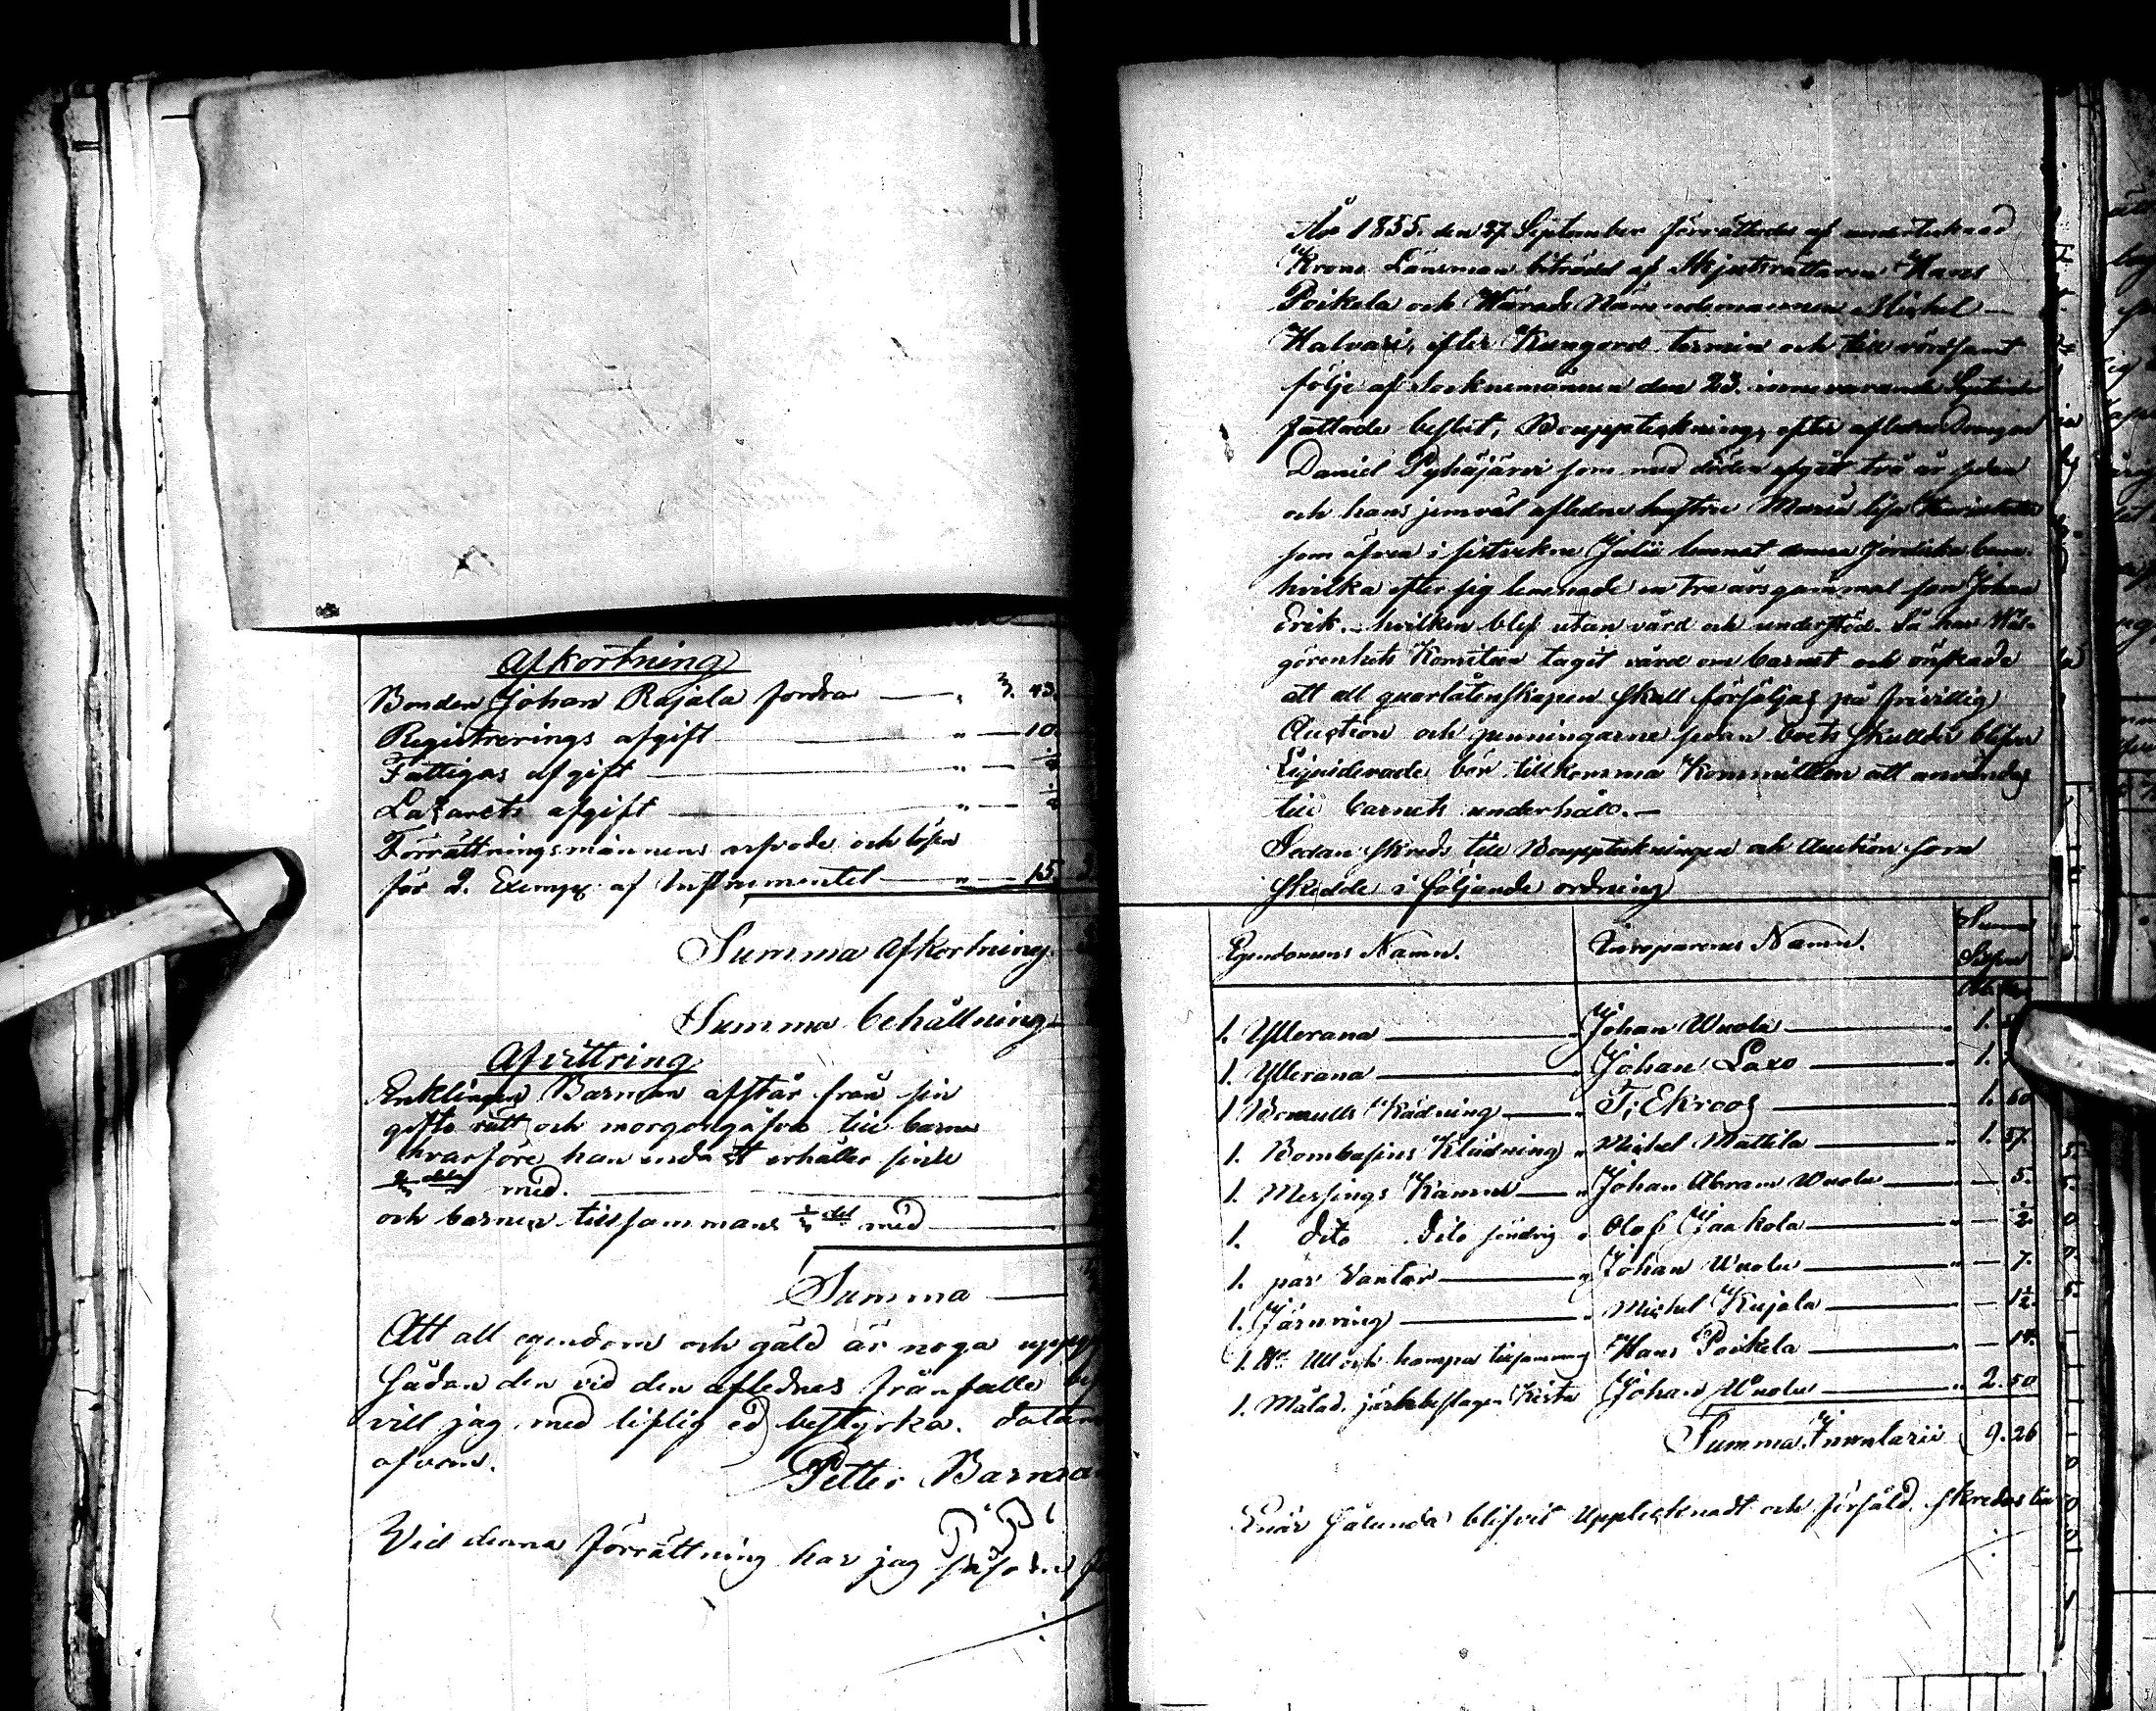 Afkortning
Bonden Johan Rajala fordra — „ 3. 43.
Registrerings afgift — „ — 10.
Fattigas afgift — „ —
Lazarets afgift — „ —
Förrättningsmännens arfvode och lösen
för 2. Exempl af Instrumentet — „ — 15
Summa Afkortning.
Summa behållning
Afvittring
Enklingen Barman afstår från sin
gifto rätt och morgongåfva till barnen
hvarföre han endast erhåller sine
med. —
och barnen tillsammans 1/3 del med —
Summa —
Att all egendom och gäld är noga
Sådan den vid den aflednes frånfälle
vill jag med liflig ed bestyrka. Datum
ofvan.
Petter Barma
Vid denna förrättning har jag
År 1855. den 27 September förrättades af undertecknad
Krono Länsman biträdd af Skjutsrättaren Hans
Poikela och Härads Nämndemannen Mickel —
Halvari, efter Kungjord termin och till
följe af Socknemännen den 23. innevarande September
fattade beslut, Bouppteckning, efter aflidne Drengen
Daniel Pyhäjärvi som med döden afgått två år sedan
och hans jemväl aflidne hustru Maria Lisa
som äfven i sistvekne Julii lemnat denna jordiska
hvilka efter sig lemnade en tre års gammal son Johan
Erik. — hvilken blef utan vård och understöd. Så har Wäl-
görenhets Komiteen tagit vård om barnet och önskade
att all quarlåtenskapen skall försäljas på frivillig
Auction och penningarne sedan boets skulder blifva
Liquiderade bör tillkomma Kommitteen att användas
till barnets underhåll. —
Sedan skreds till Bouppteckningen och Auction som
skedde i följande ordning
Egendomens Namn. Inroparenes Namn. Summa
Silfver
1. Yllerana — „ Johan Wuolu — „ 1.
1. Yllerana — „ Johan Laxo — „ 1.
1. Bomulls Klädning — „ T. Ekroos — „ 1. 60
1. Bombasins Klädning „ Mickel Mattila — „ 1. 57.
1. Messings Kanna — „ Johan Abram Wuolu — „ — 5.
1. dito dito söndrig „ Olof Jaakola — „ — 1/2.
1. par Vantar — „ Johan Wuolu — „ — 7.
1. Järnring — „ Mickel Kujala — „ — 1 1/2.
1. Ull och hampa tillsammans Hans Poikela — „ — 14.
1. Målad. järnbeslagen Kista Johan Wuolu — „ 2. 50
Summa Inventarii 9. 26
Enär Sålunda blifvit Upptecknadt och försåld. skredes till